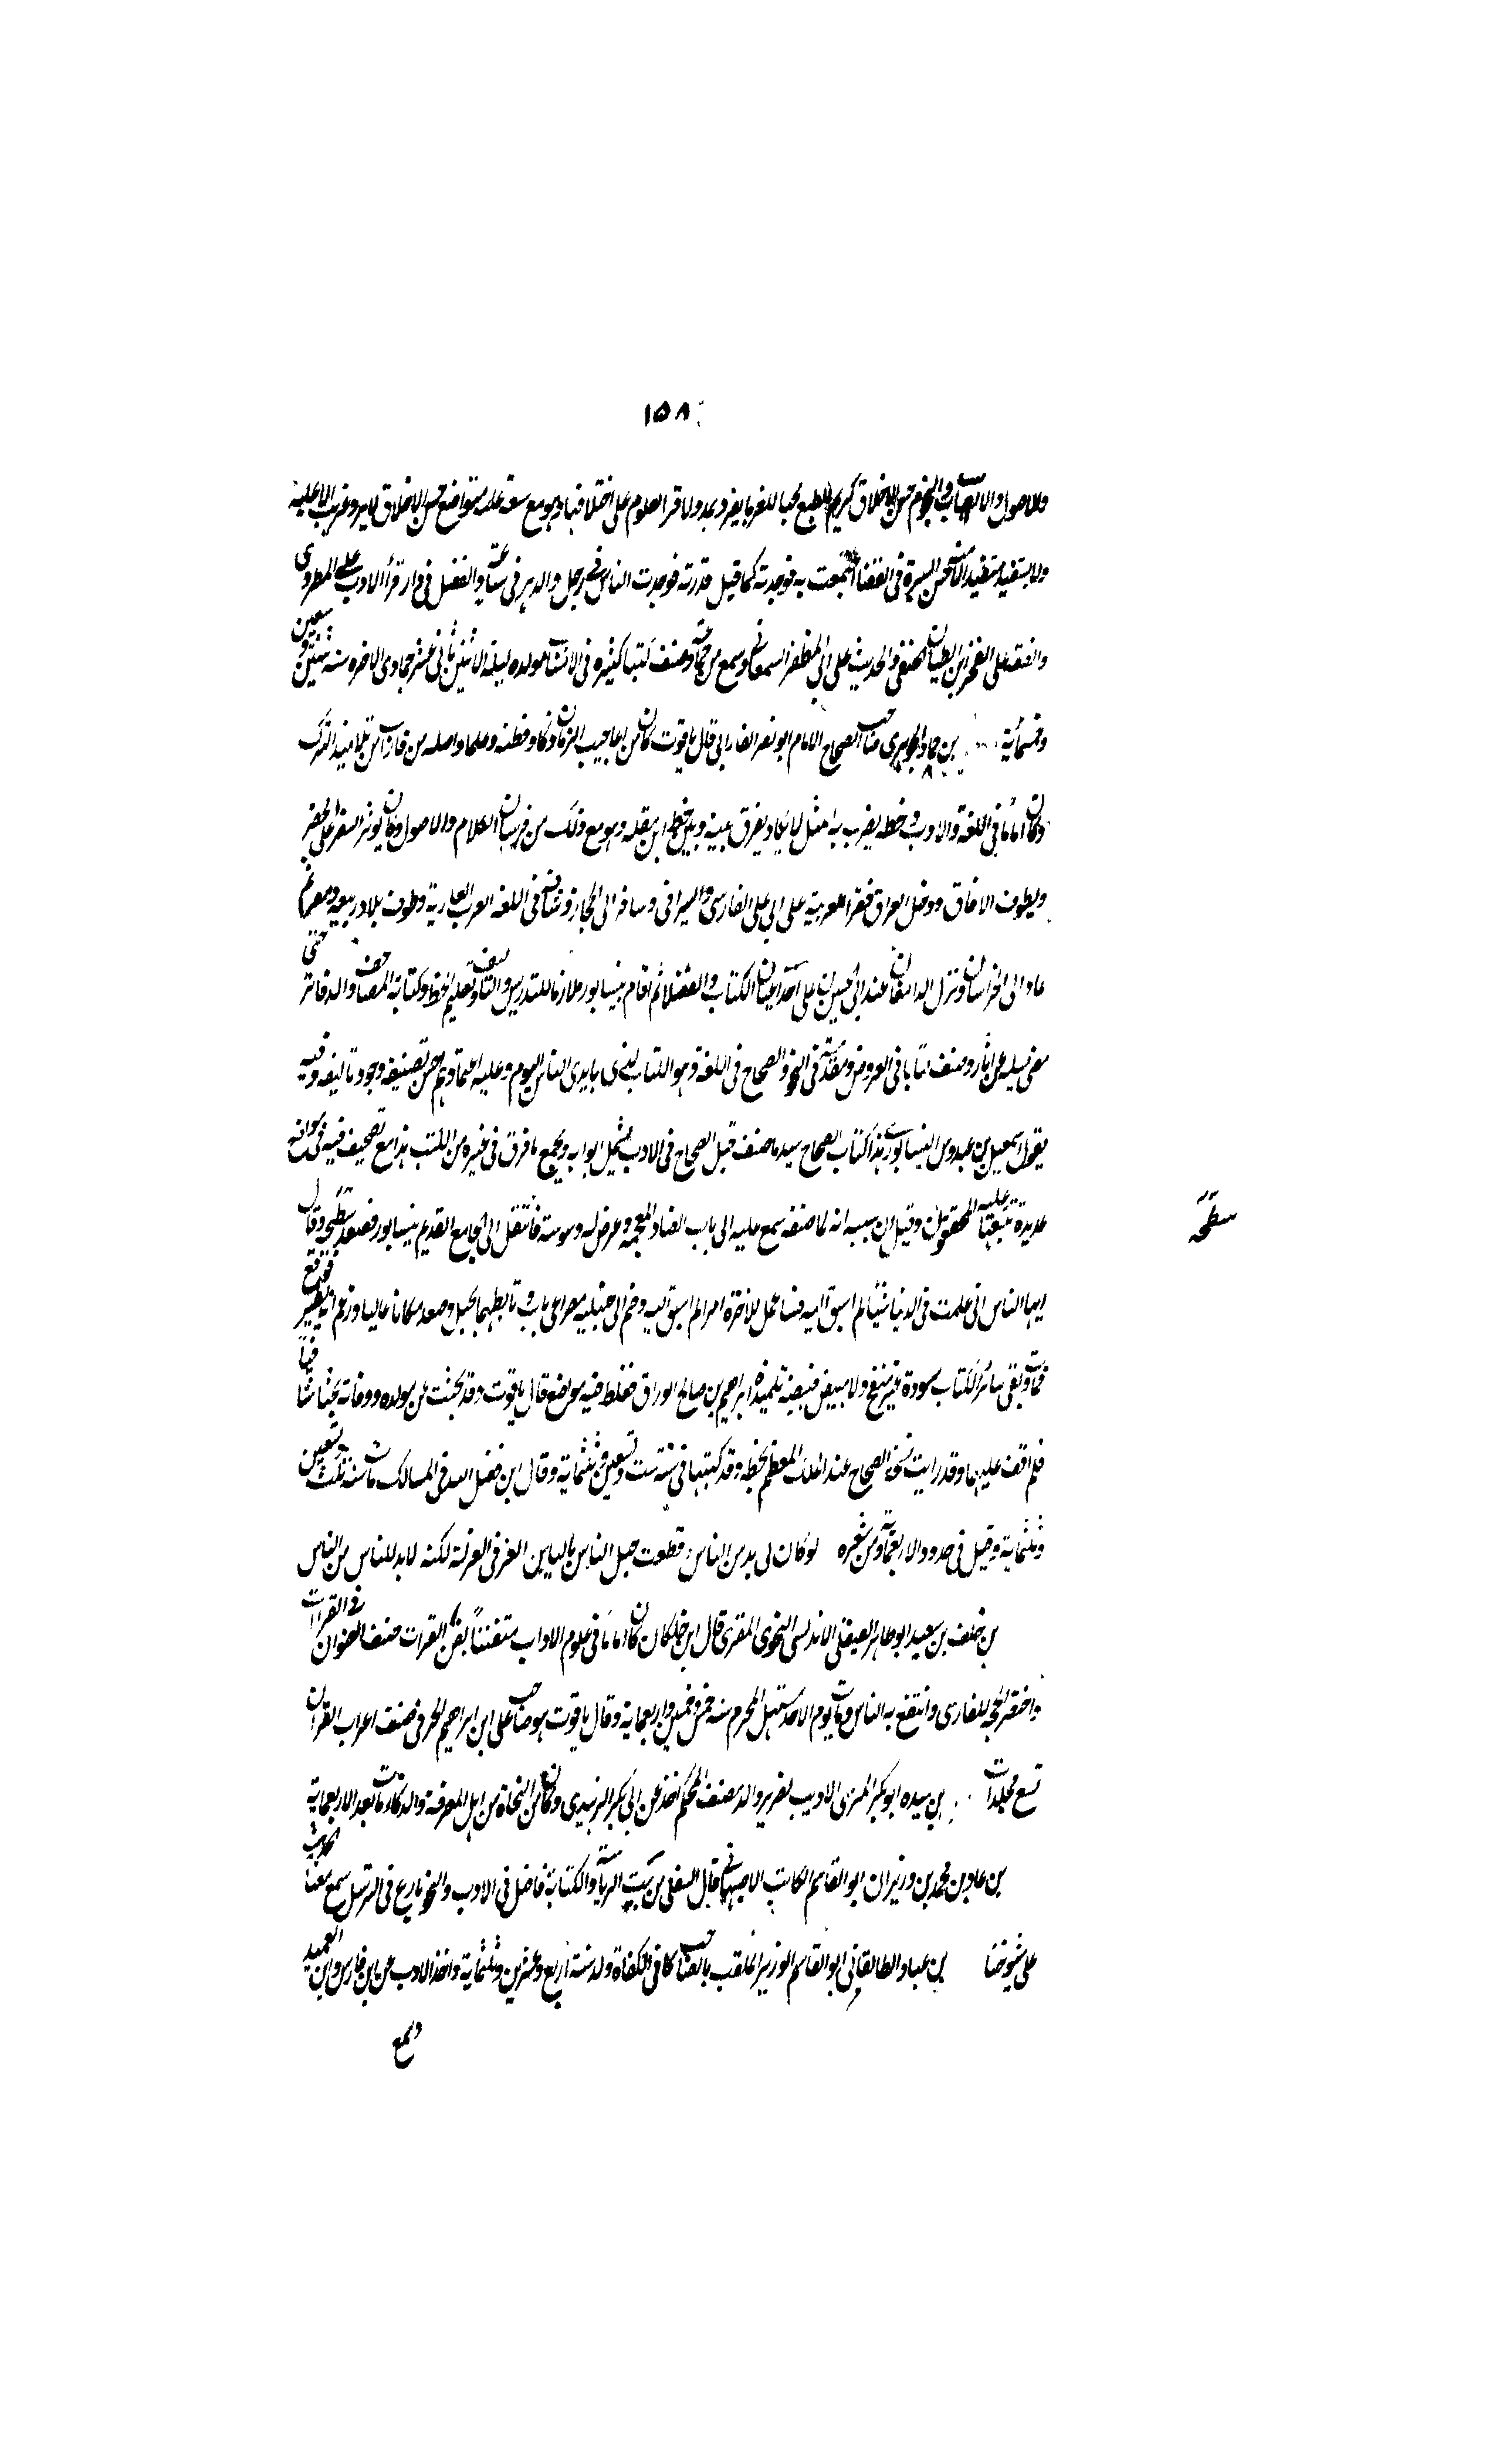 ١٥٨
والاصول والانساب والنجوم حسن الاخلاق كريم الطبع محبا للغربا يفرد بعد ولا قر العلوم على اختلافها وهو مع سعة علمه متواضع حسن الاخلاق لا يرد غريب الا عليه
ولا يستفيد مستفيد الا منه حسن السيرة فى القضا اجتمعت به فوجدته كما قيل قد زرته فوجدت الناس فى رجل والدهر فى ساعة والفضل فى دار قرأ الادب على المطرزى
والفقه على الفخر بن الطيان الحنفى والحديث على ابى المظفر السمعانى وسمع من جماعة وصنف كتبا كثيرة فى الانساب مولده ليلة الاثنين ثانى عشر جمادى الاخره سنه ثنتين وسبعين
وخمسمأية بن حماد الجوهرى صاحب الصحاح الامام ابو نصر الفارابى قال ياقوت كان من اعاجيب الزمان ذكا وفطنه وعلما واصله من فاراب من بلاد الترك
وكان اماما فى اللغة والادب وخطه يضرب به المثل لا يكاد يفرق بينه وبين خط ابن مقله وهو مع ذلك من فرسان الكلام والاصول وكان يوثر السفر على الحضر
ويطوف الافاق ودخل العراق فقرأ العربية على ابى على الفارسى والسيرافى وسافر الى الحجاز وشافه فى اللغه العرب العاربة وطوف بلاد ربيعه ومضر ثم
عاد الى خراسان ونزل الدامغان عند ابى الحسين بن على احد اعيان الكتاب والفضلا ثم اقام بنيسابور ملازما للتدريس والتاليف وتعليم الخط وكتابة المصاحف والدفاتر حتى
مضى لسبيله عن اثار وصنف كتابا فى العروض ومقدمة فى النحو والصحاح فى اللغة وهو الكتاب الذى بايدى الناس اليوم وعليه اعتمادهم احسن تصنيفه وجود تاليفه وفيه
يقول اسمعيل بن عبدوس النيسابورى هذا كتاب الصحاح سيد ما صنف قبل الصحاح فى الادب يشمل ابوابه ويجمع ما فرق فى غيره من الكتب هذا مع تصحيف فيه فى مواضع
عديدة تتبعها عليه المحققون وقيل ان سببه انه لما صنفه سمع عليه الى باب الضاد المعجمه وعرض له وسوسة فانتقل الى الجامع القديم بنيسابور فصعد سطحه وقال
سطحه
ايها الناس انى عملت فى الدنيا شيئا لم اسبق اليه فساعمل للاخرة امرا لم اسبق اليه وضم الى جنبيه مصراعى باب وتابطهما بحبل وصعد مكانا عاليا وزعم انه يطير فوقع
فمات وبقى سائر الكتاب مسودة غير منقح ولا مبيض فبيضه تلميذه ابراهيم بن صالح الوراق فغلط فيه مواضع قال ياقوت وقد بحثت عن مولده ووفاته بحثا شافيا
فلم اقف عليهما وقد رايت نسخة الصحاح عند الملك المعظم بخطه وقد كتبها فى سنة ست وتسعين وثلثماية وقال ابن فضل الله فى المسالك مات سنة ثلث وتسعين
وثلثماية وقيل فى حدود الاربعماية ومن شعره لو كان لى بد من الناس قطعت حبل الناس بالياس العز فى العزلة لكنه لا بد للناس من الناس
بن خلف بن سعيد ابو طاهر الصقلى الاندلسى النحوى المقرى قال ابن خلكان كان اماما فى علوم الاداب متفننا بفن القرات صنف العنوان فى القرات
واختصر الحجة للفارسى وانتفع به الناس ومات يوم الاحد مستهل المحرم سنه خمس وخمسين واربعماية وقال ياقوت هو صاحب على ابن ابراهيم الحوفى صنف اعراب القران
تسع مجلدات بن سيده ابو بكر المرسى الاديب الضرير والد مصنف المحكم اخذ عن ابى بكر الزبيدى وكان من النحاة من اهل المعرفة والذكا مات بعد الاربعماية
بن عباد بن محمد بن وزيران ابو القاسم الكاتب الاصبهانى قال السلفى من بيت الرياسة والكتابة فاضل فى الادب والنحو بارع فى الترسل سمع معنا الحديث
على شيوخنا بن عباد الطالقانى ابو القاسم الوزير الملقب بالصاحب كافى الكفاة ولد سنة اربع وعشرين وثلثماية واخذ الادب عن ابن فارس وابن العميد
وسمع